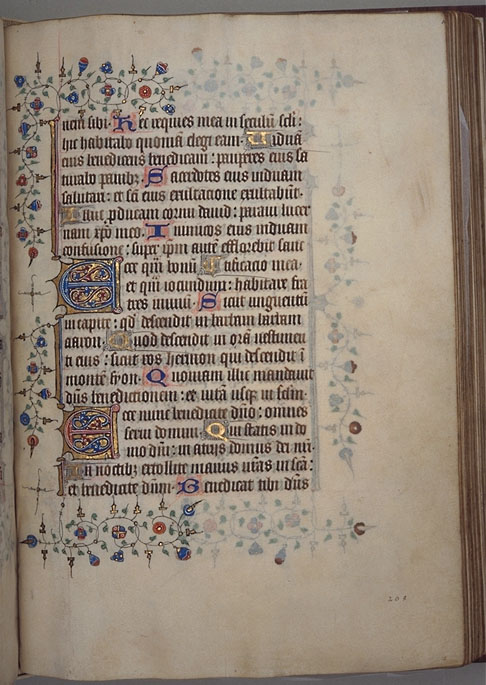 nem sibi. Hec requies mea in seculum seli:
hic habitabo quoniam elegi eam. Viduam
eius benedicens benedicam: pauperes eius sa
turabo panibz Sacerdotes eius induam
salutari: et sci eius exultacione exultabut.
Illuc producam cornu david: paravi lucer
nam xpo meo. Inimicos eius induam
confusione: super ipm autem efflorebit sanc
Ecce qm bonu Iustificacio mea.
et qm iocundum: habitare fra
tres in unu. Sicut unguentu
in capite: qd descendit in barbam barbam
aaron. Quod descendit in ora vestimen
ti eius: sicut ros hermon qui descendit i
monte syon. Quoniam illic mandavit
dns benedictionem: et vita usqz in seculu
Ecce nunc benedicite dno: omnes
servi domini. Qui statis in do
mo dni: in atrijs domus dei nri.
In noctibz extollite manus vras in sca:
et benedicite dnm. Benedicat tibi dns
208